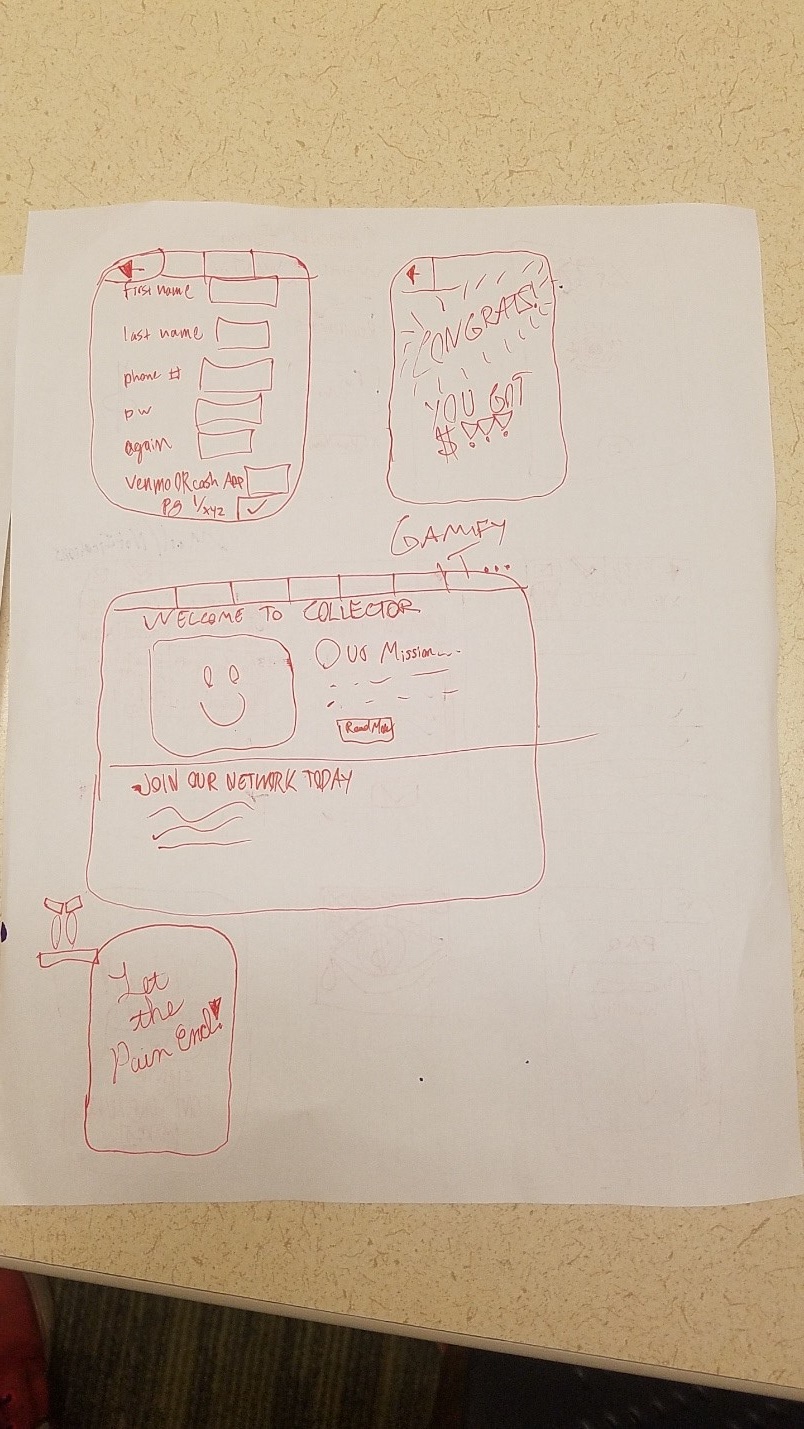 first name
last name
phone #
pw
again
venmo OR cash App
pg 1/xyz
CONGRATS!
YOU GOT
$
GAMIFY
IT...
WELCOME TO COLLECTOR
Our Mission...
Read More
JOIN OUR NETWORK TODAY
Let
the
Pain End!